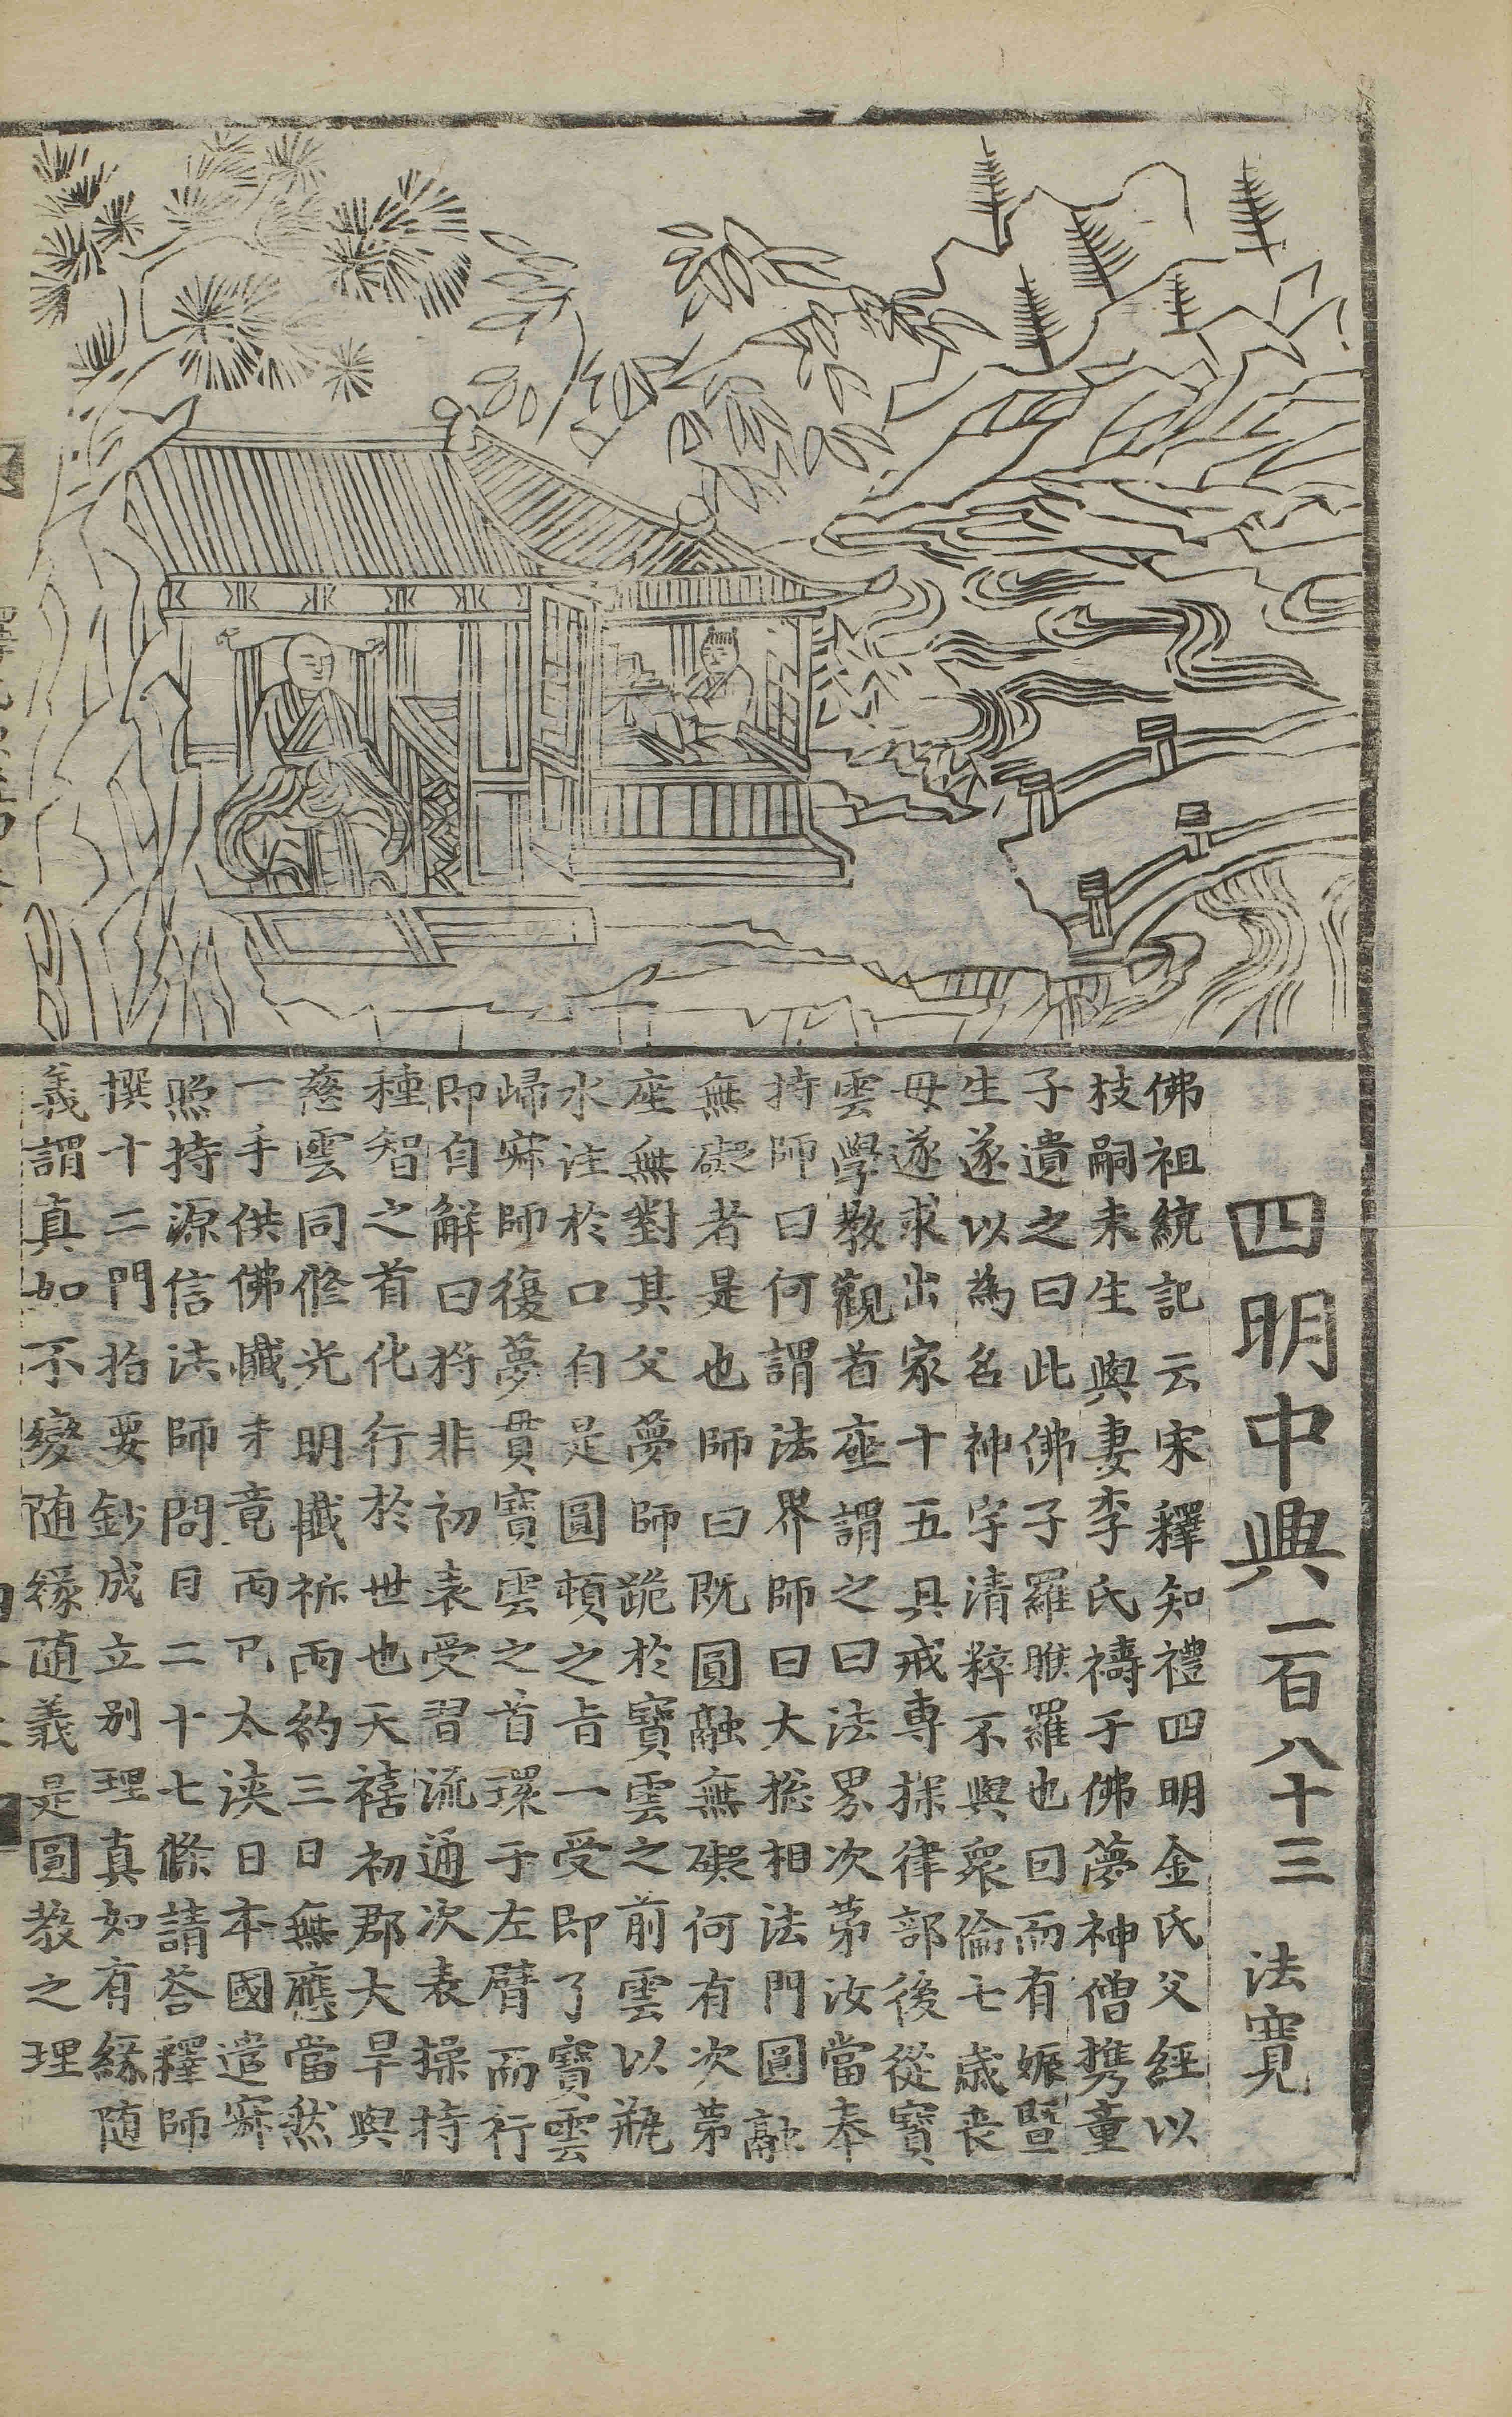 四明中興一百八十三　法寶
佛祖統記云宋釋知禮四明金氏父經以
枝嗣未生與妻李氏禱于佛夢神僧携童
子遺之曰此佛子羅睺羅也回而有娠暨
生遂以為名神宇清粹不與衆倫七歲丧
母遂求出家十五具戒専探律部後從寶
雲學教觀首座謂之曰法界次苐汝當奉
持師曰何謂法界師曰大揔相法門圓融
無礙者是也師曰既圓融無礙何有次苐
座無對其父夢師跪於寶雲之前雲以瓶
水注於口自是圓頓之旨一受即了寶雲
歸寂師復夢貫寶雲之首環于左臂而行
即自解曰將非初表受習流通次表操持
種智之首化行於世也天禧初郡大旱與
慈雲同修光明懺祈雨約三日無應當然
一手供佛懺未竟雨已太浹日本國遣寂
照持源信法師問目二十七條請荅釋師
撰十二門指要鈔成立别理真如有緣随
義謂真如不變随緣随義是圓教之理